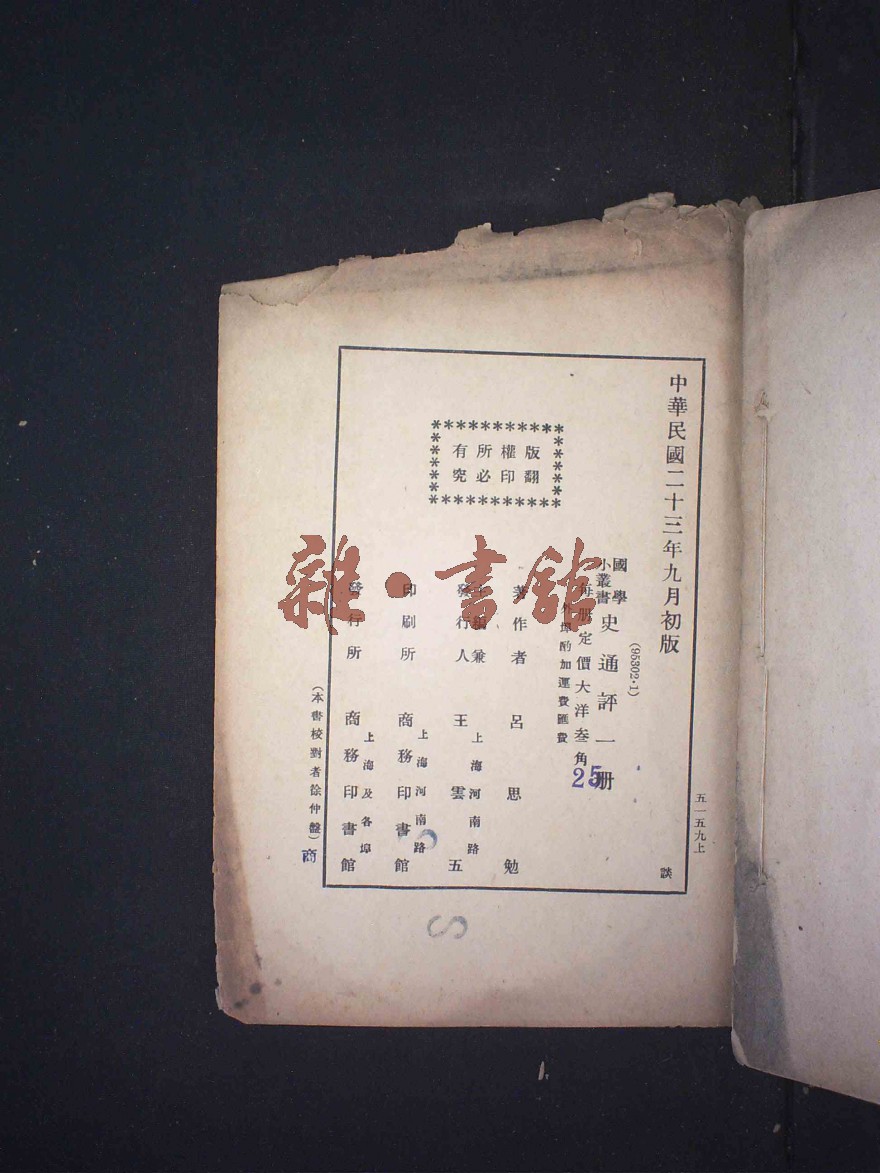 中華民國二十三年九月初版
五一五九上
談
(95302·1)
國學
小叢書
史通評一冊
每冊定價大洋叁角
25
外埠酌加運費匯費
版權所有
翻印必究
著作者 呂思勉
主編兼
發行人 王雲五
上海河南路
印刷所 商務印書館
上海河南路
發行所 商務印書館
上海及各埠
(本書校對者徐仲盤)
商
雜·書館